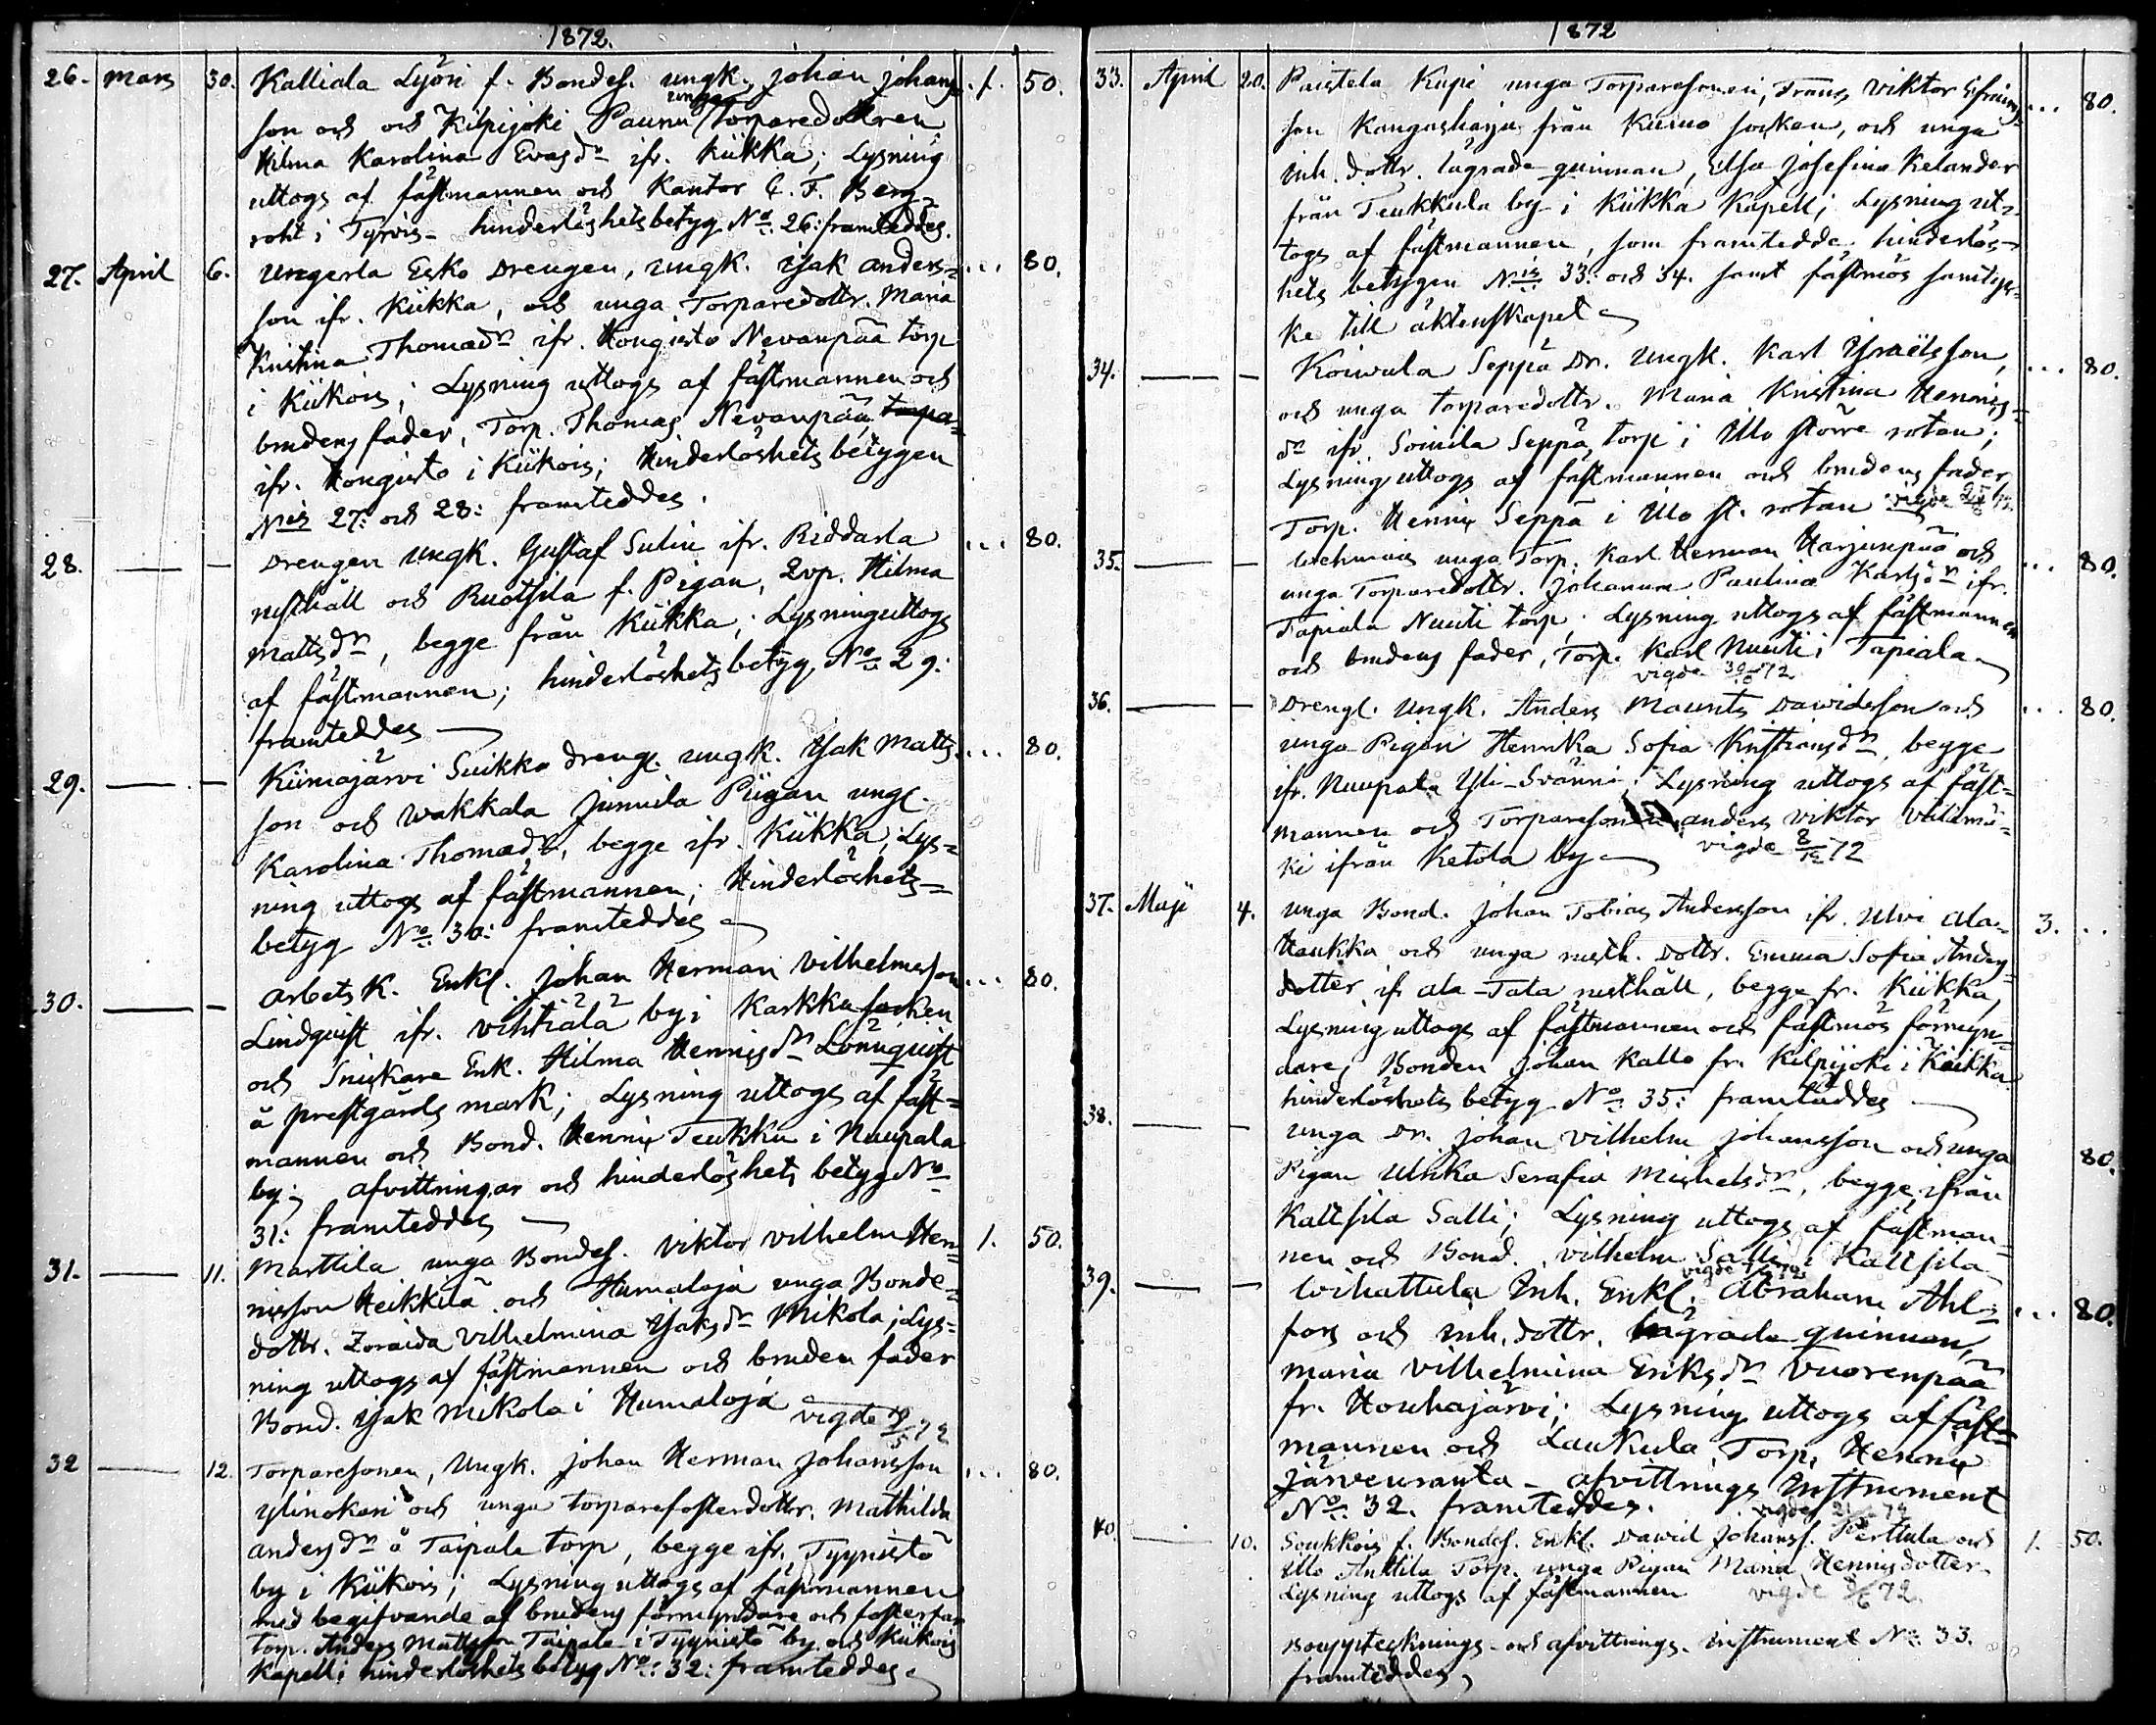 1872.
26. Mars 30. Kalliala Lyöri f. Bondes. ungk. Johan Johans- 1. 50.
son och och Kilpijoki Paunu unga Torparedottren
Hilma Karolina Evasdr ifr. Kiikka; Lysning
uttogs af fästmannen och Kantor C. F. Berg-
roht i Tyrvis - hinderlöshetsbetyg No. 26: framteddes.
27. April 6. Ungerla Esko Drengen, ungk. Isak Anders- ... 80.
son ifr. Kiikka, och unga Torparedottr. Maria
Kristina Thomasdr ifr. Kongisto Nevanpää torp
i Kiikois; Lysning uttogs af fästmannen och
brudens fader, Torp. Thomas Nevanpää,
ifr. Kongisto i Kiikois; Hinderlöshets betygen
Nis 27: och 28: framteddes.
28. — — Drengen Ungk. Gustaf Sulin ifr. Riddarla ... 80.
rusthåll och Ruotsila f. Pigan, Qvp. Hilma
Mattsdr, begge från Kiikka; Lysning uttogs
af fästmannen; hinderlöshets betyg No 29:
framteddes —
29. — — Kiimajärvi Suikko Drengl. ungk. Isak Matts- ... 80.
son och Wakkala Junnila Piigan ungl.
Karolina Thomasdr, begge ifr. Kiikka; Lys-
ning uttogs af fästmannen; Hinderlöshets-
betyg No: 30: framteddes
30. — — Arbets K. Enkl. Johan Herman Vilhelmsson ... 80.
Lindqvist ifr. Vihtiälä by i Karkku socken
och Snickare Enk. Hilma Henriksdr Lönnqvist
å prestgårds mark; Lysning uttogs af fäst-
mannen och Bond. Henrik Teukku i Nuupala
by; afvittringar och hinderlöshets betyg No
31: framteddes —
31. — 11. Marttila unga Bondes. Viktor Vilhelm Hen- 1. 50.
riksson Heikkilä och Humaloja unga Bonde-
dottr. Zoraida Vilhelmina Isaksdr Mikola; Lys-
ning uttogs af fästmannen och bruden fader
Bond. Isak Mikola i Humaloja vigde 72
32 — 12. Torparesonen, Ungk. Johan Herman Johansson ... 80.
Ylinokeri och unga torparefosterdottr. Mathilda
Andersdr å Taipale torp, begge ifr. Tyynistö
by i Kiikois; Lysning uttogs af fästmannen
med begifvande af brudens förmyndare och fosterfar
torp. Anders Mattsson Taipale i Tyynistö by och Kiikois
Kapell; hinderlöshets betyg No: 32: framteddes.
1872
33. April 20. Paistela Kupi unga Torparesonen, Frans Viktor Efraims- ... 80.
son Kangasharju från Kumo socken, och unga
Inh. dottr. lägrade qvinnan, Elsa Josefina Kelander
från Teukkula by i Kiikka Kapell; Lysning ut-
togs af fästmannen, som framtedde hinderlös-
hets betygen Nis 33: och 34. samt fästmös samtyc-
ke till äktenskapet
34. — — Koivula Seppä Dr. Ungk. Karl Israelsson, ... 80.
och unga torparedottr. Maria Kristina Henriks-
dr ifr. Soinila Seppä torp i Illo större rotan;
Lysning uttogs af fästmannen och brudens fader,
Torp. Henrik Seppä i Illo st. rotan vigde
35. — — unga Torp. Karl Herman Harjunpää och ... 80.
unga Torparedottr. Johanna Paulina Karlsdr ifr.
Tapiala Nuuti torp; Lysning uttogs af fästmannen
och brudens fader, Torp. Karl Nuuti i Tapiala
vigde 72
36. — — Drengl. Ungk. Anders Maurits Davidsson och ... 80.
unga Pigan Henrika Sofia Kristiansdr, begge
ifr. Nuupala Yli-Svänni; Lysning uttogs af fäst-
mannen och Torparesonen Anders Viktor Välimä-
ki ifrån Ketola by vigde 8/12 72
37. Maji 4. Unga Bond. Johan Tobias Andersson ifr. Ulvi Ala- 3. ..
Haukka och unga rusth. dottr. Emma Sofia Anders-
dotter ifr Ala-Tala rusthåll, begge fr. Kiikka,
Lysning uttogs af fästmannen och fästmös förmyn-
dare, Bonden Johan Kallo fr. Kilpijoki i Kiikka
hinderlöshets betyg No: 35: framteddes —
38. — — unga Dr. Johan Vilhelm Johansson och unga 80.
Pigan Ulrika Serafia Michelsdr, begge ifrån
Kaltsila Salli; Lysning uttogs af fästman-
nen och Bond. Vilhelm Salli i Kaltsila
vigde
39. — — Wihattula Inh. Enkl. Abraham Ahl- ... 80.
fors och Inh. dottr. lägrade qvinnan,
Maria Vilhelmina Eriksdr Vuorenpää
fr. Houhajärvi; Lysning uttogs af fäst-
mannen och Laukula Torp. Henrik
Järvenranta - afvittrings Instrument
No: 32. framteddes. vigde 72
40. — 10. Soukkois f. Bondes. Enkl. David Johanss. Perttula och 1. 50.
Illo Anttila Torp. unga Pigan Maria Henriksdotter
Lysning uttogs af fästmannen vigde 72.
Bouppteknings- och afvittrings- instrument No: 33.
framteddes